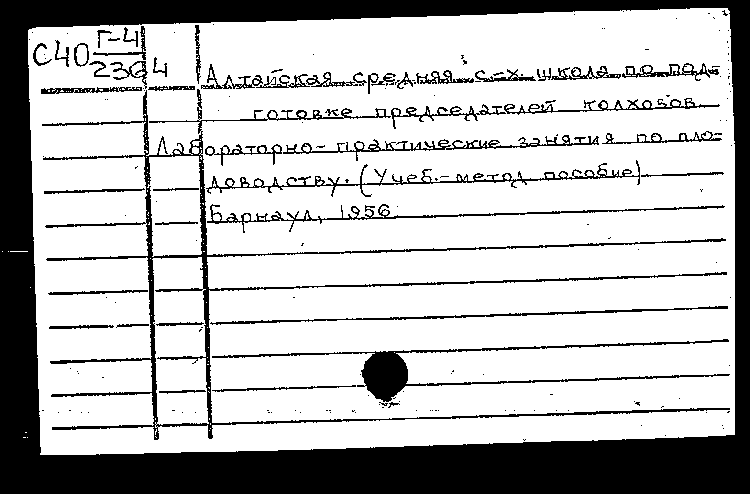 С40 Г-4
2364
Алтайская средняя с-х. школа по под=
готовке председателей колхозов
Лабораторно-практические занятия по пло=
доводству. (Учеб.-метод пособие)
Барнаул, 1956.